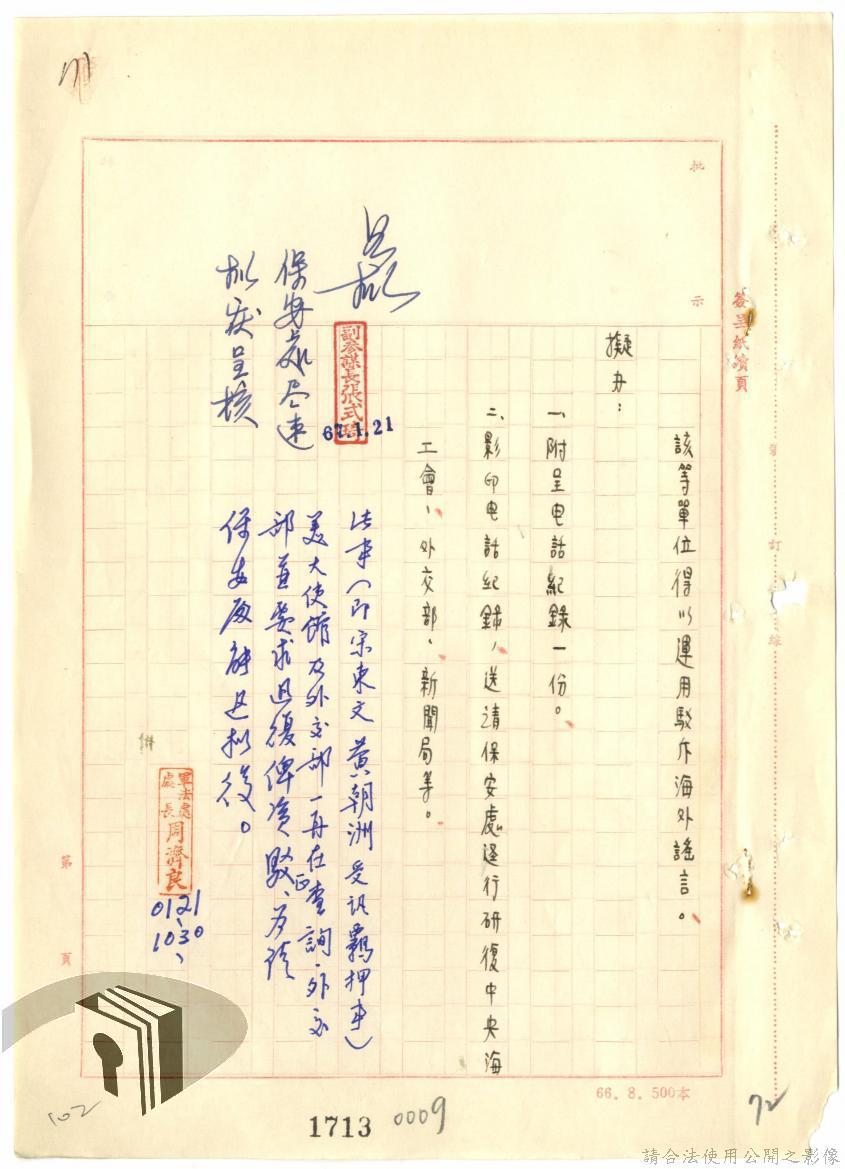 簽呈紙續頁
批示
裝訂線
該等單位得以運用駁斥海外謠言。
擬办：
一、附呈电話紀錄一份。
二、影印电話紀錄，送請保安處逕行研復中央海
工會、外交部、新聞局等。
副參謀長張式琦
67.1.21
保安處尽速
擬成呈核
法率（即宋東文黃朝洲受訊羈押事）
美大使館及外交部一再在查詢，外交
部並要求迅復俾資駁正、
保安處辦迅擬復。
軍法處處長周濟良
0121
1030
第頁
66. 8. 500本
102
1713
0009
72
71
請合法使用公開之影像